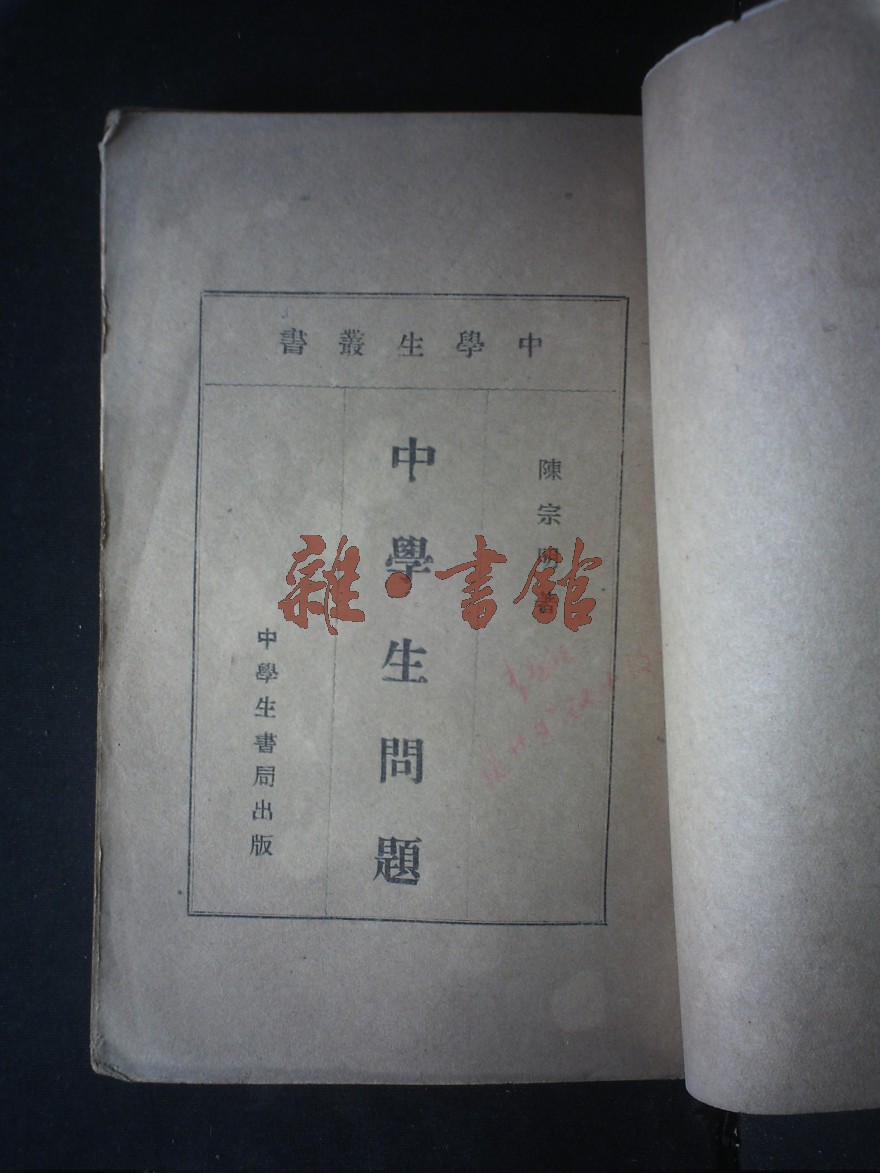 中學生叢書
陳宗明著
中學生問題
中學生書局出版
雜·書館